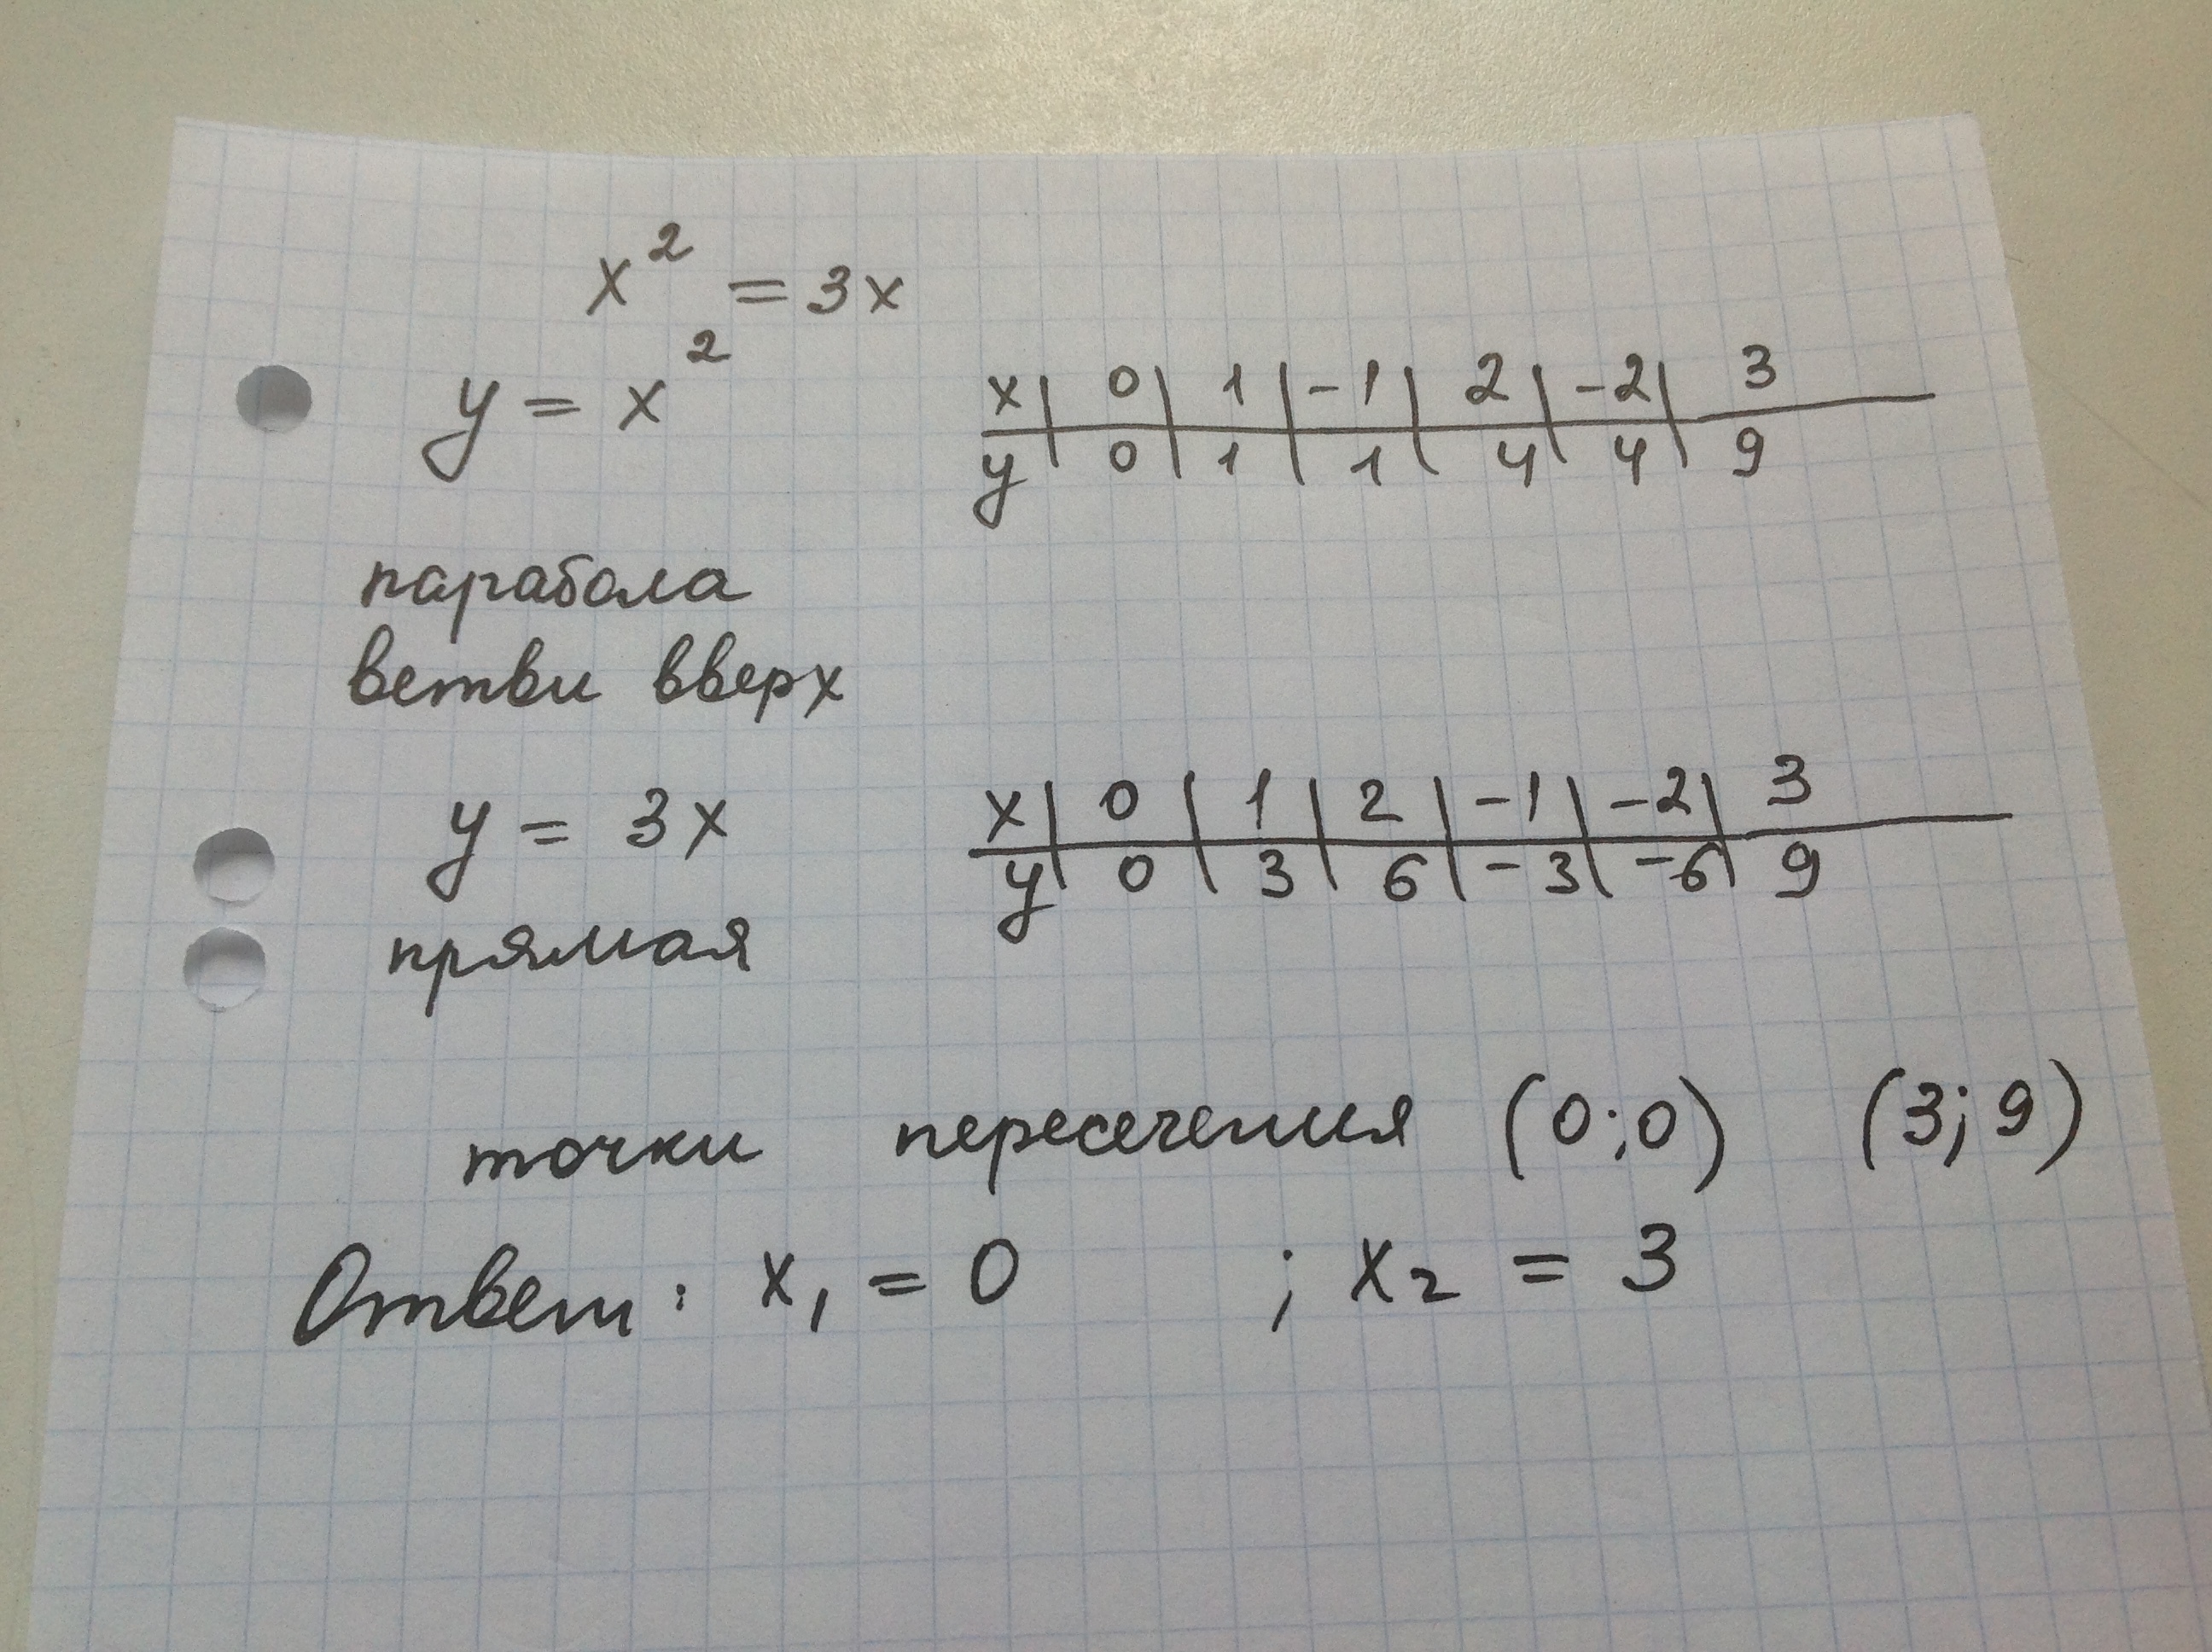 x² = 3x
y = x²
x | 0 | 1 | -1 | 2 | -2 | 3
y | 0 | 1 | 1 | 4 | 4 | 9
парабола
ветви вверх
y = 3x
x | 0 | 1 | 2 | -1 | -2 | 3
y | 0 | 3 | 6 | -3 | -6 | 9
прямая
точки пересечения (0;0) (3;9)
Ответ: x₁ = 0 ; x₂ = 3